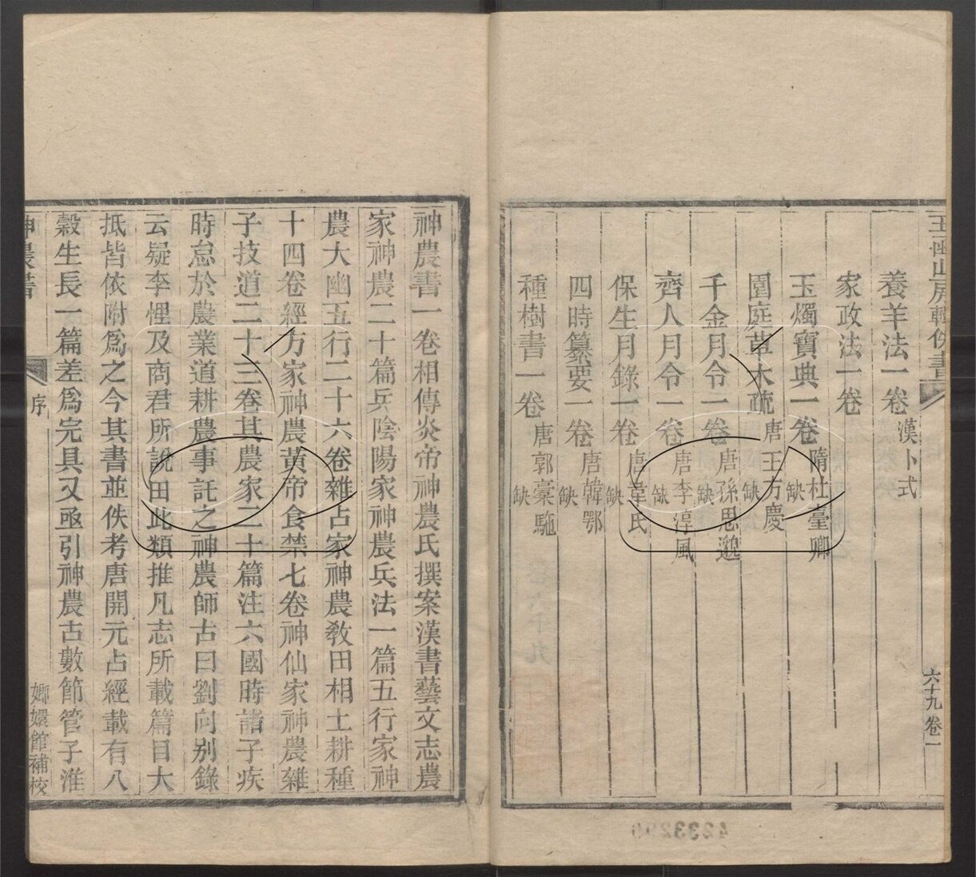 玉函山房輯佚書
六十九卷一
養羊法一卷 漢卜式
家政法一卷
玉燭寶典一卷 隋杜臺卿 缺
園庭草木疏 唐王方慶 缺
千金月令一卷 唐孫思邈 缺
齊人月令一卷 唐李淳風 缺
保生月錄一卷 唐韋氏 缺
四時纂要一卷 唐韓鄂 缺
種樹書一卷 唐郭橐駞 缺
神農書一卷相傳炎帝神農氏撰案漢書藝文志農
家神農二十篇兵陰陽家神農兵法一篇五行家神
農大幽五行二十六卷雜占家神農教田相土耕種
十四卷經方家神農黃帝食禁七卷神仙家神農雜
子技道二十三卷其農家二十篇注六國時諸子疾
時怠於農業道耕農事託之神農師古曰劉向別錄
云疑李悝及商君所說田此類推凡志所載篇目大
抵皆依附為之今其書並佚考唐開元占經載有八
穀生長一篇差為完具又亟引神農古數節管子淮
神農書 序 嫏嬛館補校
4233200